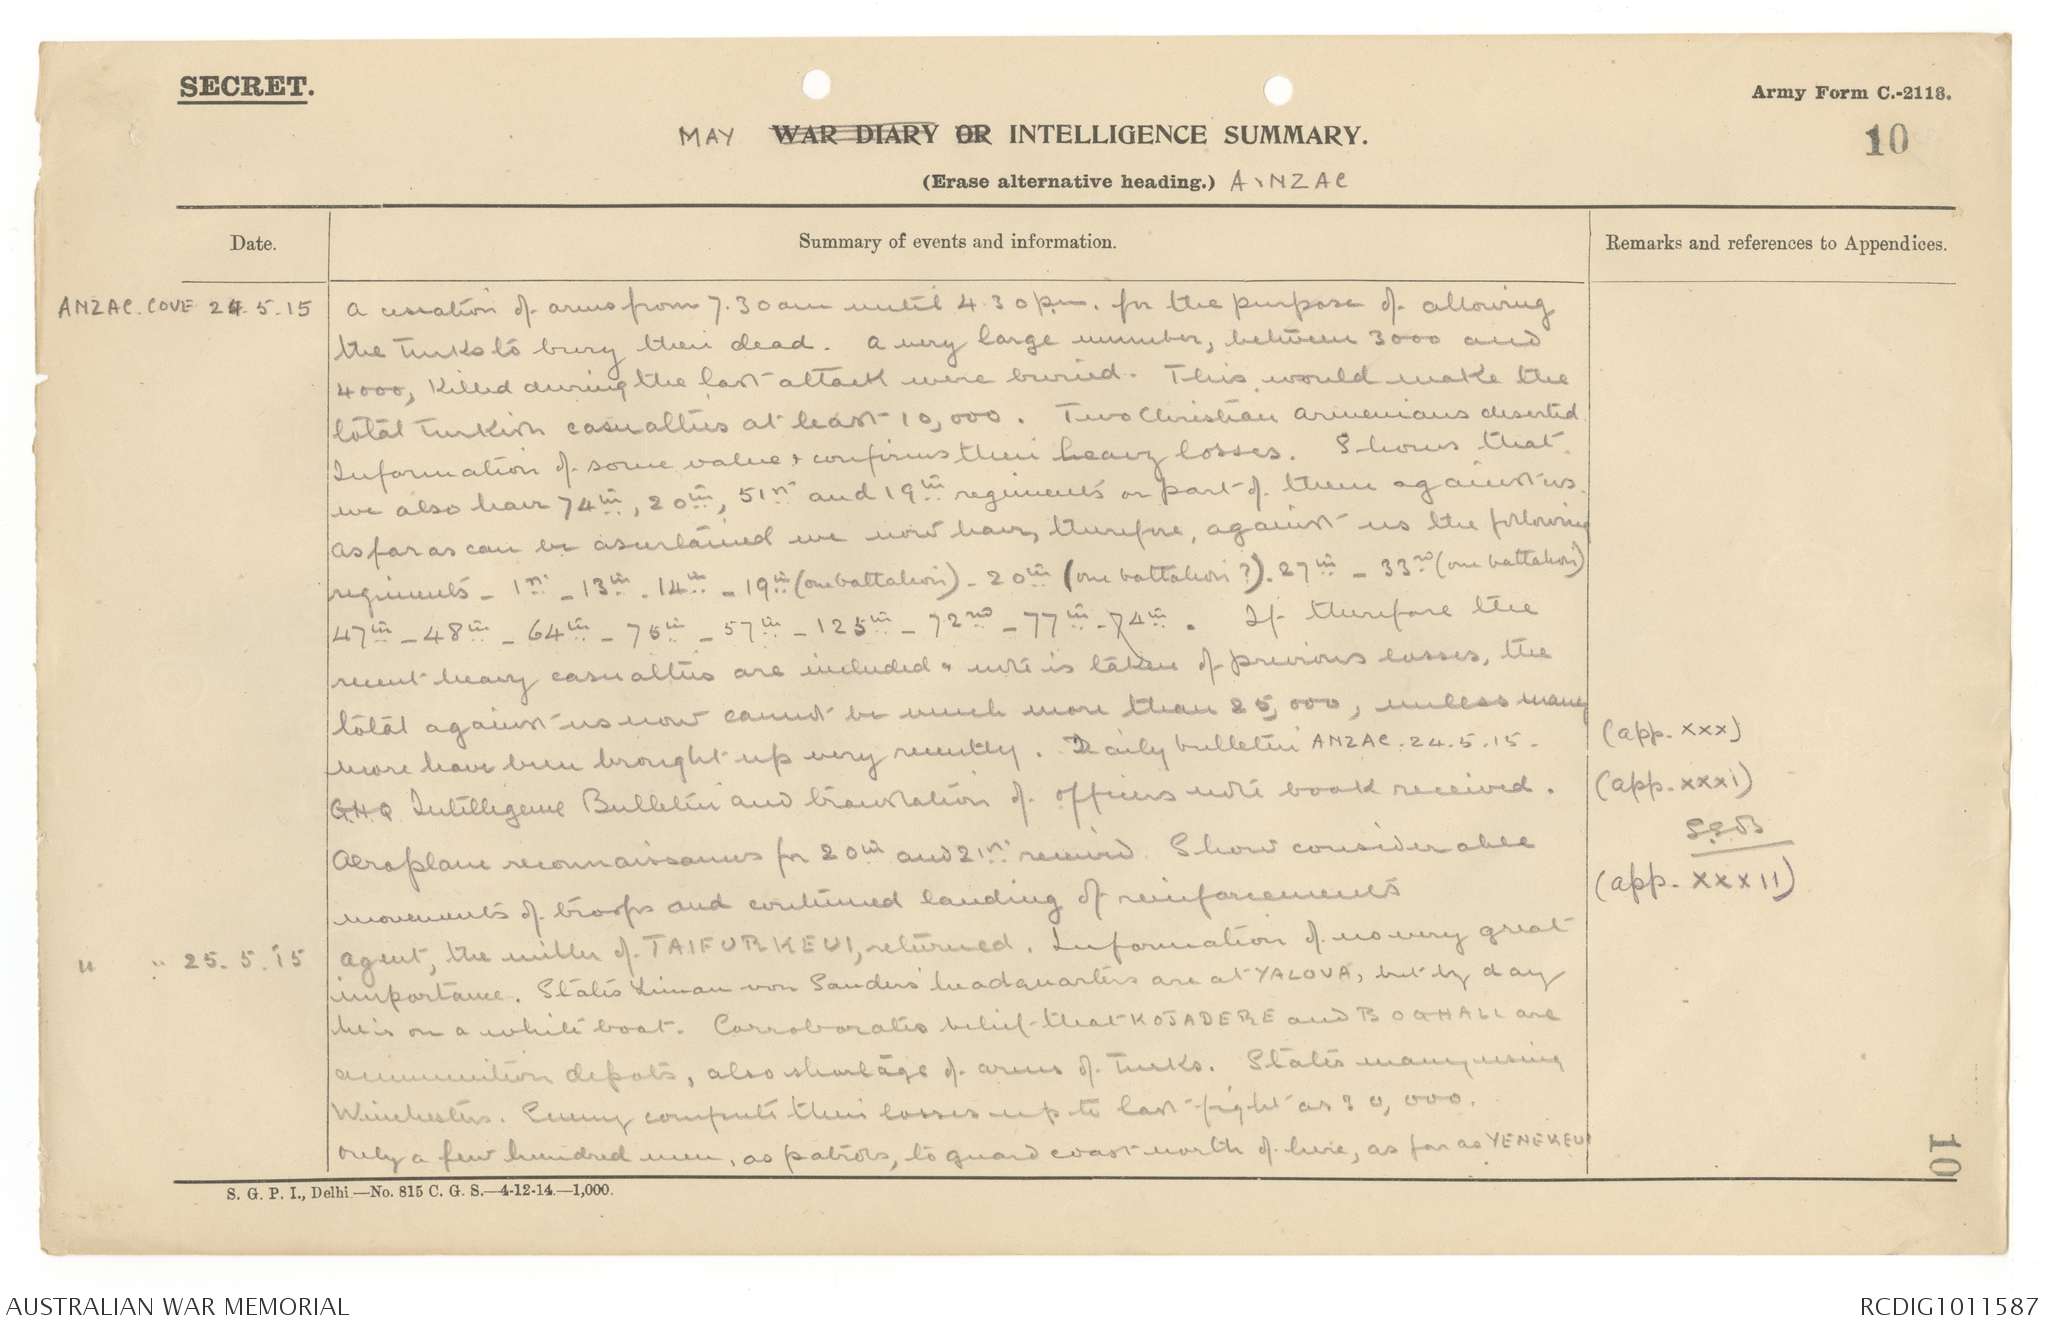 SECRET.
Army Form C.-2118.
10
MAY WAR DIARY OR INTELLIGENCE SUMMARY.
(Erase alternative heading.) ANZAC
Date.
Summary of events and information.
Remarks and references to Appendices.
ANZAC. COVE 24.5.15
A cessation of arms from 7.30am until 4.30pm. for the purpose of allowing
the Turks to bury their dead. A very large number, between 3000 and
4000, killed during the last attack were buried. This would make the
total Turkish casualties at least 10,000. Two Christian Armenians deserted
Information of some value & confirms their heavy losses. Shows that
we also have 74th, 20th, 51st and 19th regiments or part of them against us.
As far as can be ascertained we now have, therefore, against us the following
regiments - 1st - 13th - 14th - 19th (one battalion) - 20th (one battalion?) - 27th - 33rd (one battalion)
47th - 48th - 64th - 75th - 57th - 125th - 72nd - 77th - 74th. If therefore the
recent heavy casualties are included & note is taken of previous losses, the
total against us now cannot be much more than 25,000, unless many
more have been brought up very recently. Daily bulletin ANZAC. 24.5.15.
(app. xxx)
GHQ Intelligence Bulletin and translation of officers note book received.
(app. xxxi)
Aeroplane reconnaissances for 20th and 21st received. Show considerable
(app. xxxII)
movements of troops and continued landing of reinforcements
" " 25.5.15
Agent, the miller of TAIFURKEUI, returned. Information of no very great
importance. States Liman von Sanders' headquarters are at YALOVA, but by day
he is on a white boat. Corroborates belief that KOJADERE and BOGHALI are
ammunition depots, also shortage of arms of Turks. States many using
Winchesters. Enemy compute their losses up to last fight as 30,000.
Only a few hundred men, as patrols, to guard coast north of here, as far as YENEKEUI
10
S. G. P. I., Delhi.—No. 815 C. G. S.—4-12-14.—1,000.
AUSTRALIAN WAR MEMORIAL
RCDIG1011587